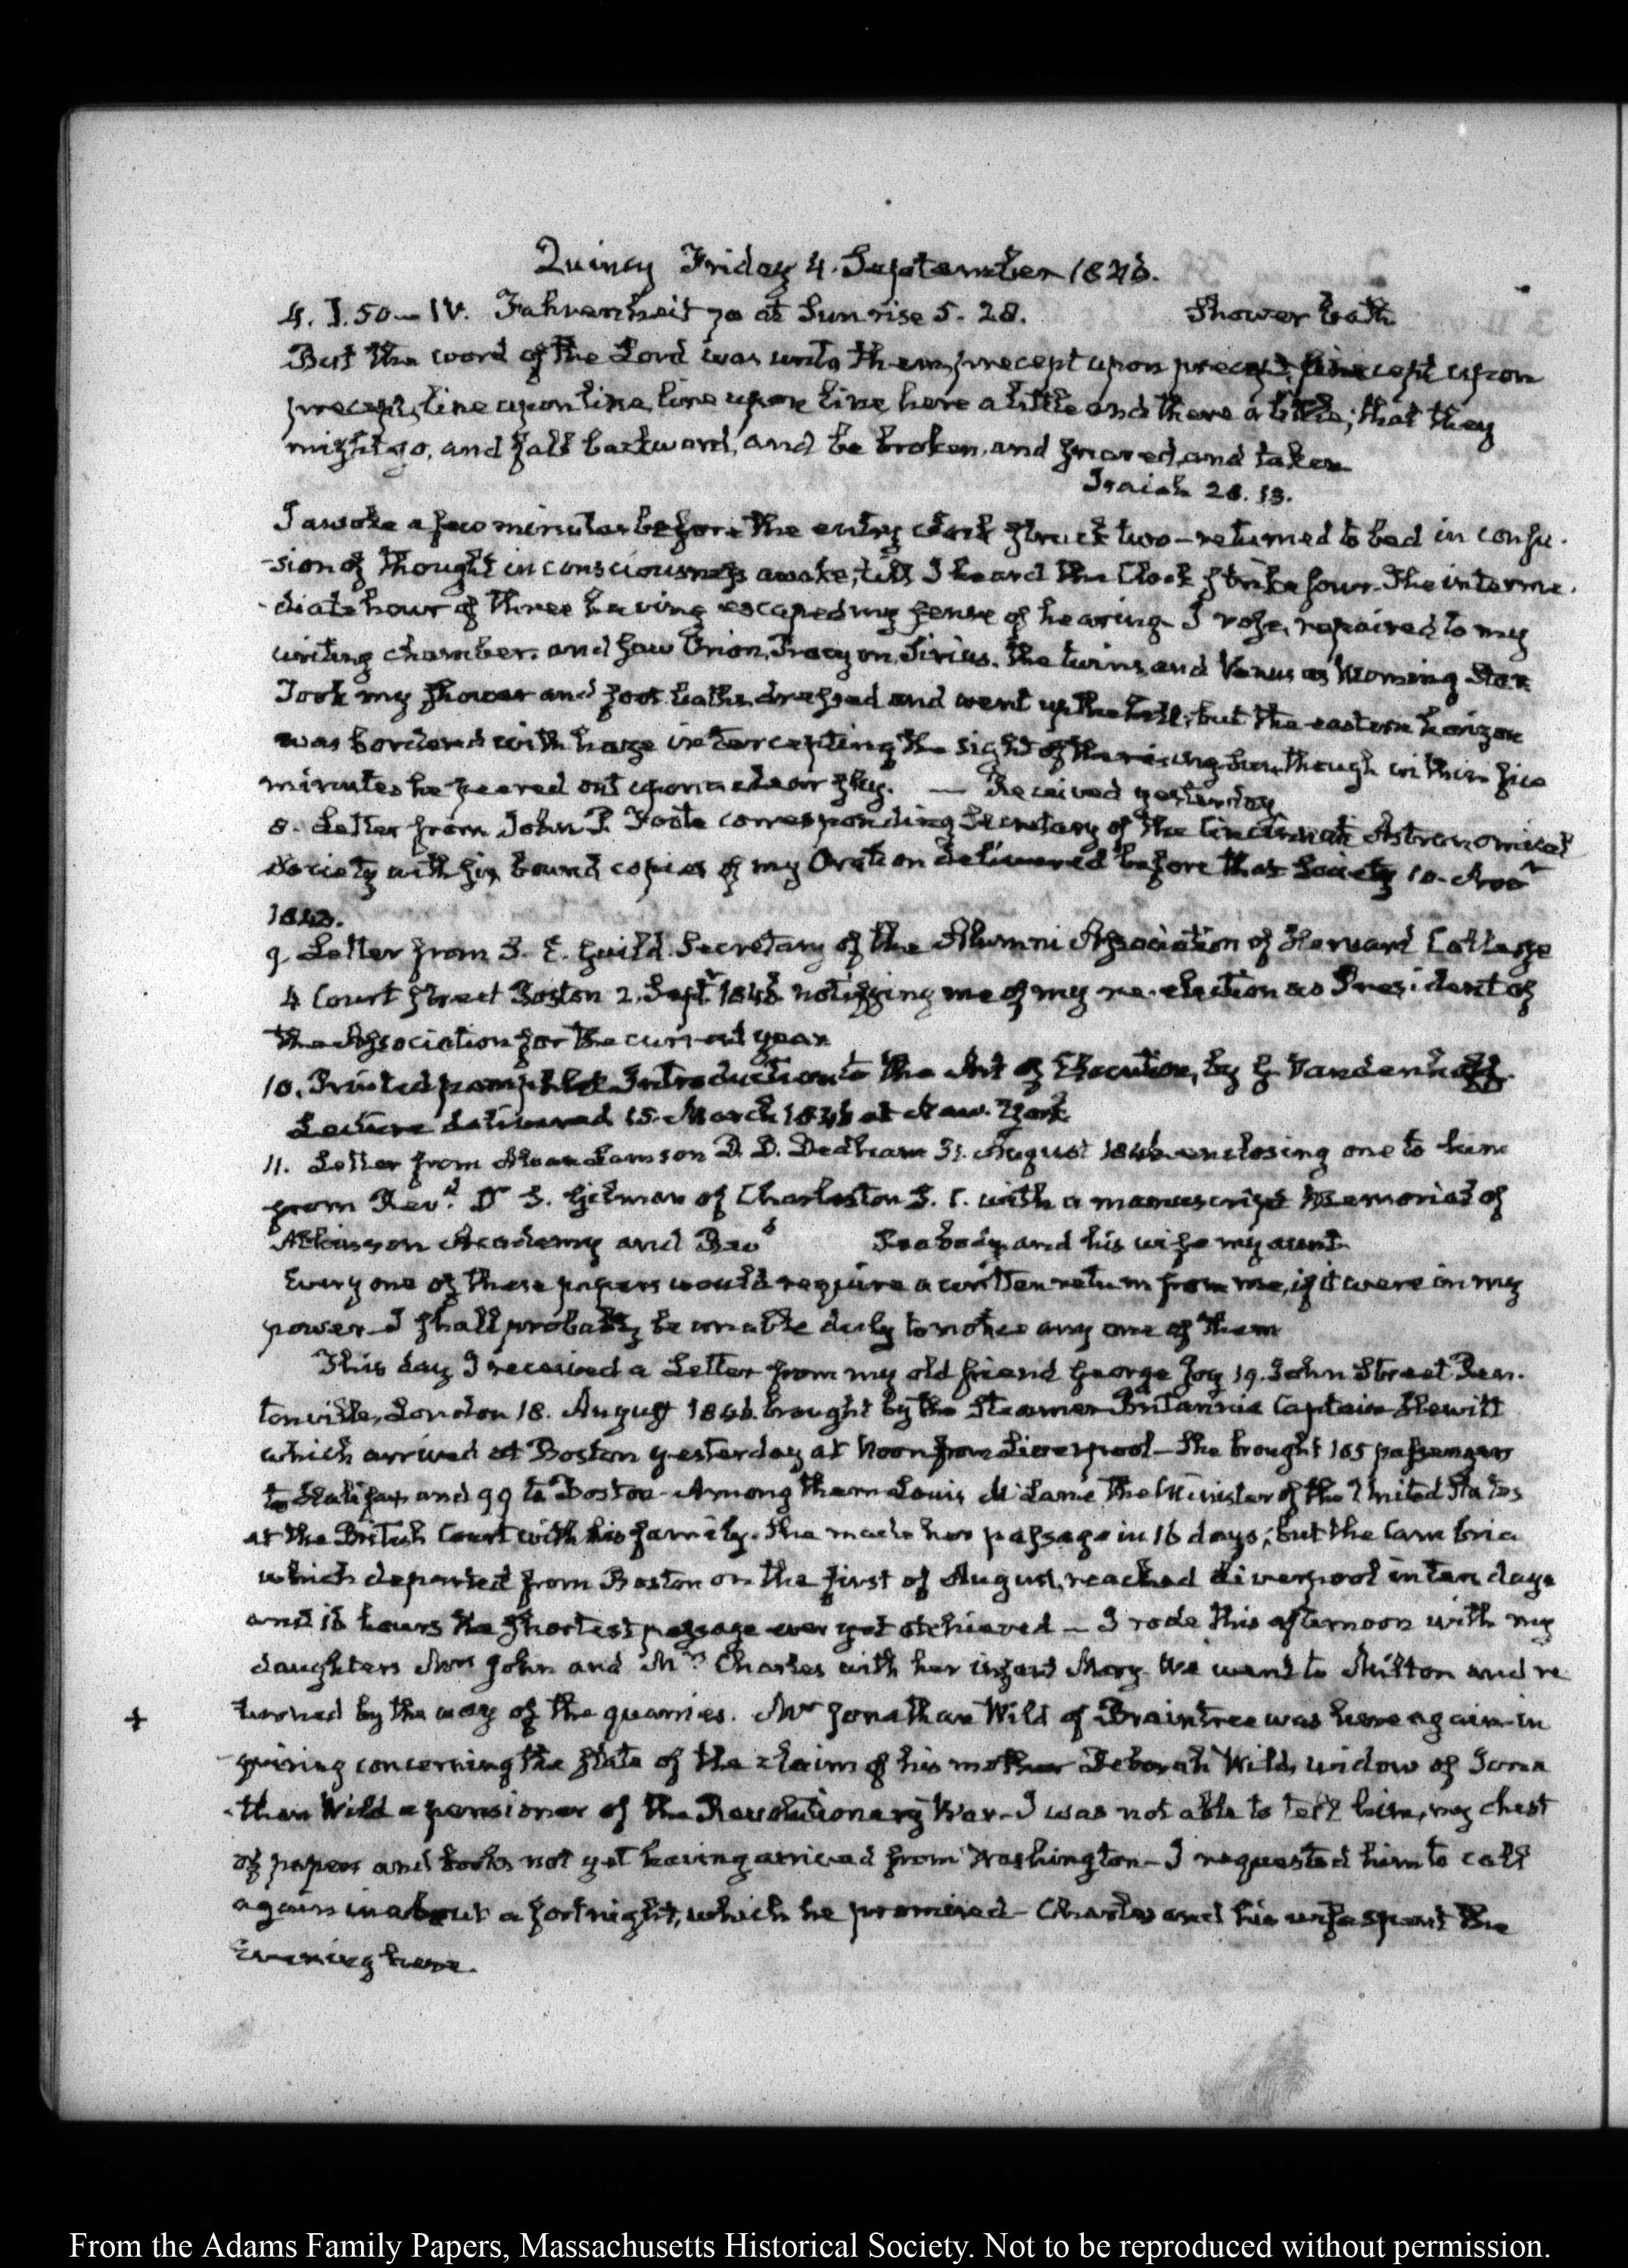 Quincy Friday 4. September 1846.
4. I.50—IV. Fahrenheit 70 at Sunrise 5.28. Shower bath
But the word of the Lord was unto them, precept upon precept, precept upon
precept, line upon line, line upon line here a little and there a little; that they
might go, and fall backward, and be broken, and snared, and taken
Isaiah 28.13.
I awoke a few minutes before the entry clock struck two—returned to bed in confu-
-sion of thought in consciousness awake, till I heard the Clock strike four. The interme-
-diate hour of three having escaped my sense of hearing. I rose, repaired to my
writing chamber, and saw Orion, Procyon, Sirius, the twins, and Venus as Morning Star
Took my shower and foot baths dressed and went up the hill; but the eastern horizon
was bordered with haze intercepting the sight of the rising Sun, though within five
minutes he peered out upon a clear sky. — Received yesterday
8. Letter from John P. Foote corresponding Secretary of the Cincinnati Astronomical
Society with six bound copies of my Oration delivered before that Society 10. Novr
1843.
9 Letter from S. E. Guild Secretary of the Alumni Association of Harvard College
4 Court Street Boston 2. Septr 1846 notifying me of my re-election as President of
the Association for the current year
10. Printed pamphlet Introduction to the Art of Elocution, by G Vandenhoff.
Lecture delivered 15. March 1846 at New-York
11. Letter from Alvan Lamson D. D. Dedham 31. August 1846 enclosing one to him
from Revd. Dr S. Gilman of Charleston S. C. with a manuscript Memorial of
Atkinson Academy and Revd Peabody and his wife my aunt
Every one of these papers would require a written return from me, if it were in my
power—I shall probably be unable duly to notice any one of them
This day I received a Letter from my old friend George Joy 19. John Street Pen-
tonville, London 18. August 1846. brought by the Steamer Britannia Captain Hewitt
which arrived at Boston yesterday at Noon from Liverpool—She brought 105 passengers
to Halifax and 99 to Boston—Among them Louis McLane the Minister of the United States
at the British Court with his family. She made her passage in 16 days; but the Cambria
which departed from Boston on the first of August, reached Liverpool in ten days
and 16 hours the shortest passage ever yet atchieved—I rode this afternoon with my
daughters Mrs John and Mrs Charles with her infant Mary. We went to Milton and re
turned by the way of the quarries. Mr Jonathan Wild of Braintree was here again in
+
-quiring concerning the state of the claim of his mother Deborah Wild, widow of Jona
-than Wild a pensioner of the Revolutionary War—I was not able to tell him, my chest
of papers and books not yet having arrived from Washington—I requested him to call
again in about a fortnight, which he promised—Charles and his wife spent the
Evening here.
From the Adams Family Papers, Massachusetts Historical Society. Not to be reproduced without permission.